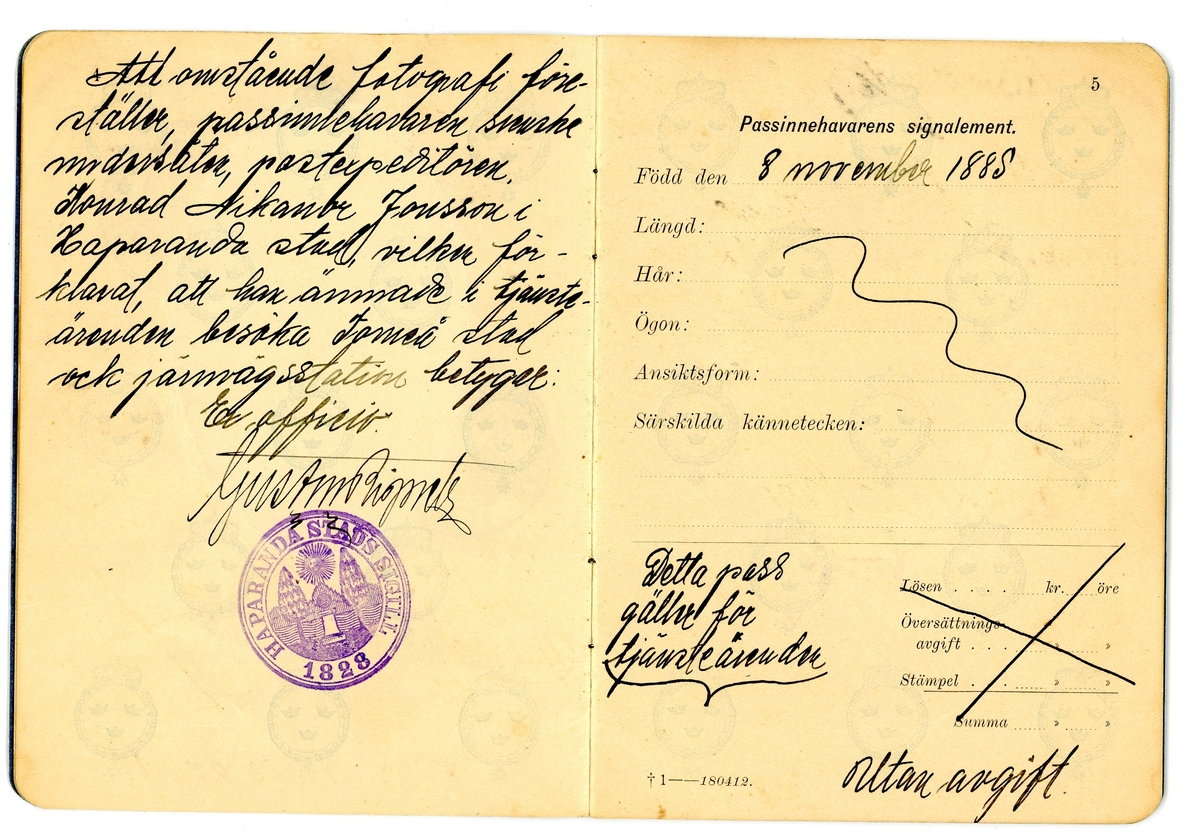 Att omstående fotografi före-
ställer, passinnehavaren svenske
undersåten, postexpeditören,
Konrad Nikanor Jonsson i
Haparanda stad, vilken för-
klarat, att han ämnade i tjänste-
ärenden besöka Torneå stad
ock järnvägsstation betygar:
Ex officio.
HAPARANDA STADS SIGILL
1828
5
Passinnehavarens signalement.
Född den 8 november 1885
Längd:
Hår:
Ögon:
Ansiktsform:
Särskilda kännetecken:
Detta pass
gäller för
tjänsteärenden
Lösen . . . . kr. öre
Översättnings-
avgift . . » »
Stämpel . . . » »
Summa » »
† 1——180412.
Utan avgift.